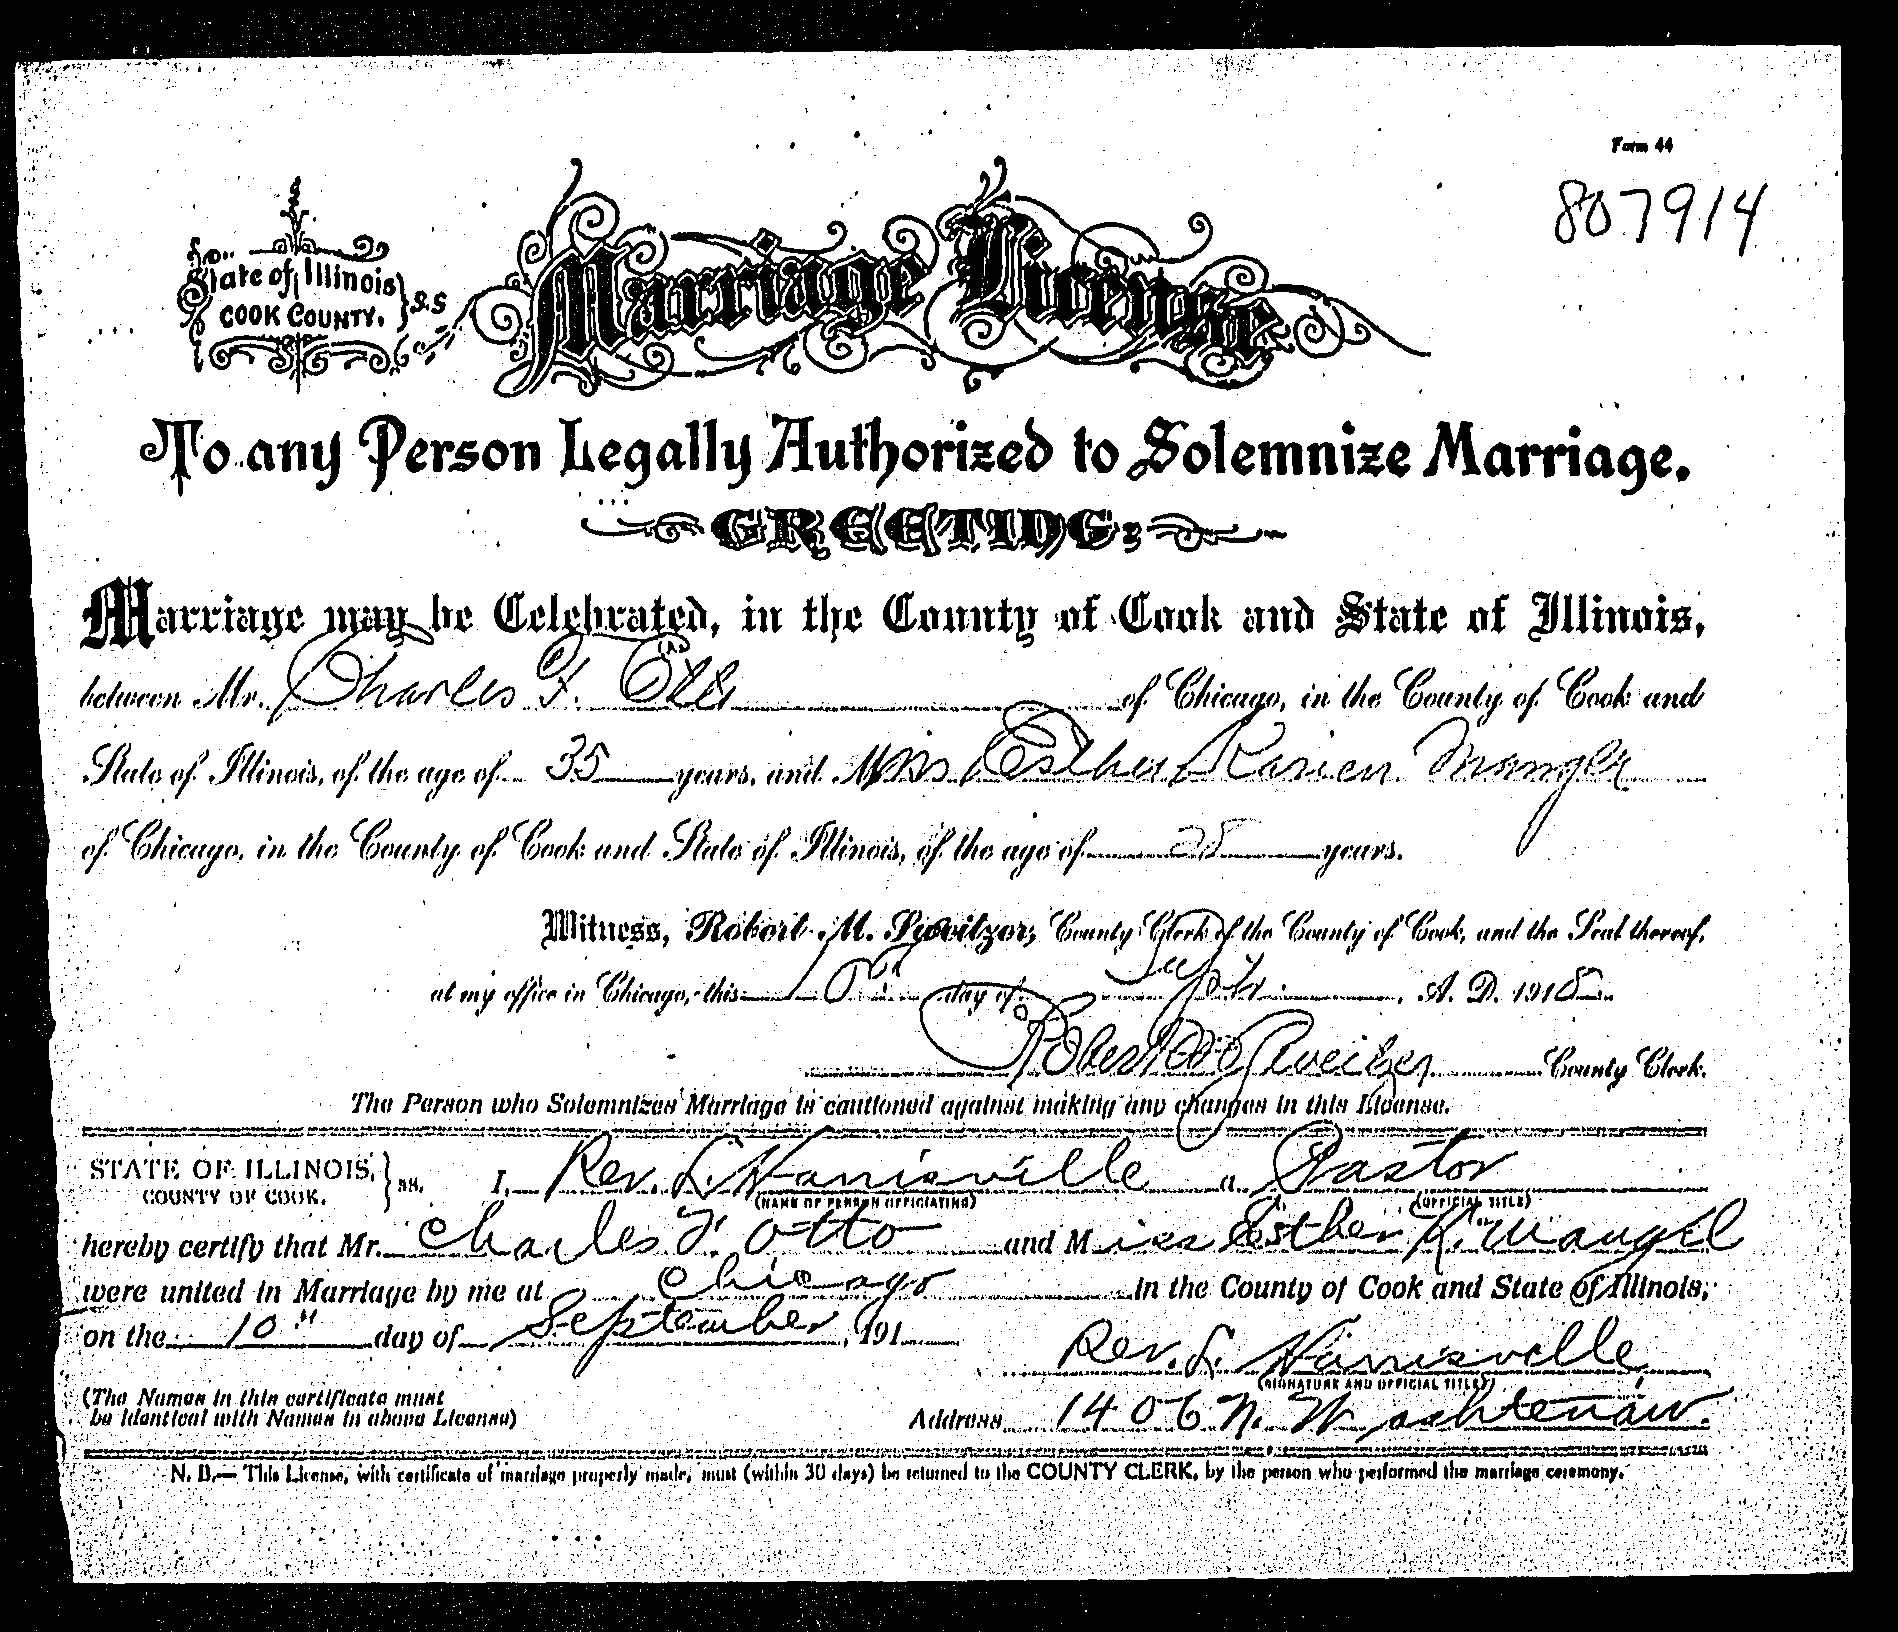 Form 44
807914
State of Illinois } S.S
COOK COUNTY.
Marriage License
To any Person Legally Authorized to Solemnize Marriage.
GREETING:
Marriage may be Celebrated, in the County of Cook and State of Illinois,
between Mr. Charles F. Otto of Chicago, in the County of Cook and
State of Illinois, of the age of 35 years, and Miss Esther Karien Mangel
of Chicago, in the County of Cook and State of Illinois, of the age of 28 years.
Witness, Robert M. Sweitzer, County Clerk of the County of Cook, and the Seal thereof,
at my office in Chicago, this 10" day of Sept. A. D. 1918
Robert M Sweitzer County Clerk.
The Person who Solemnizes Marriage is cautioned against making any changes in this License.
STATE OF ILLINOIS, } ss. I, Rev. L. Harrisville a Pastor
COUNTY OF COOK.
(NAME OF PERSON OFFICIATING) (OFFICIAL TITLE)
hereby certify that Mr. Charles F. Otto and Miss Esther K. Mangel
were united in Marriage by me at Chicago in the County of Cook and State of Illinois,
on the 10" day of September, 191
Rev. L. Harrisville
(SIGNATURE AND OFFICIAL TITLE)
(The Names in this certificate must
be identical with Names in above License)
Address 1406 N. Washtenaw.
N. B.— This License, with certificate of marriage properly made, must (within 30 days) be returned to the COUNTY CLERK, by the person who performed the marriage ceremony.